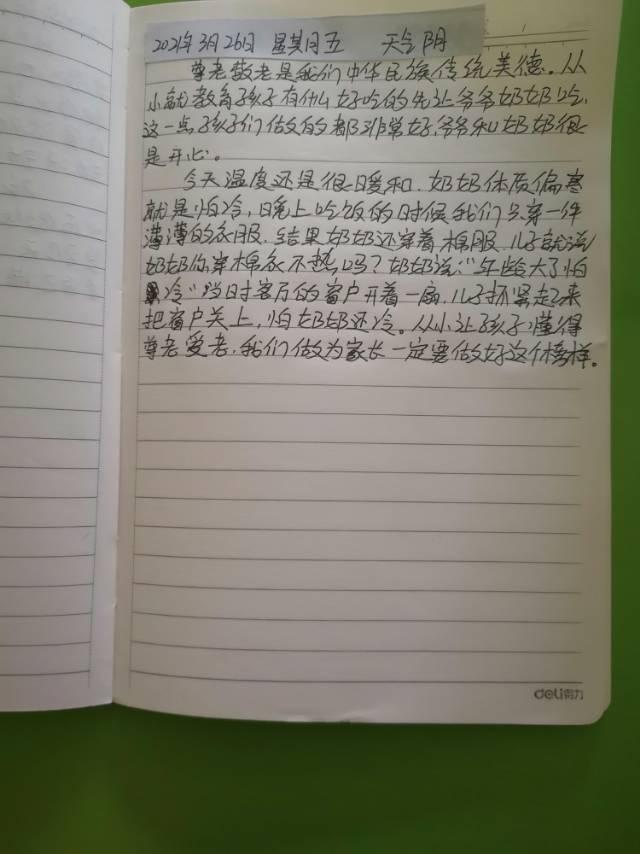 2021年3月26日 星期五 天气阴
尊老敬老是我们中华民族传统美德。从
小就教育孩子有什么好吃的先让爷爷奶奶吃,
这一点孩子们做的都非常好,爷爷和奶奶很
是开心。
今天温度还是很暖和,奶奶体质偏寒
就是怕冷,晚上吃饭的时候我们只穿一件
薄薄的衣服,结果奶奶还穿着棉服,儿子就说
奶奶你穿棉衣不热吗?奶奶说:"年龄大了怕
冷"当时客厅的窗户开着一扇,儿子赶紧起来
把窗户关上,怕奶奶还冷。从小让孩子懂得
尊老爱老,我们做为家长一定要做好这个榜样。
deli得力